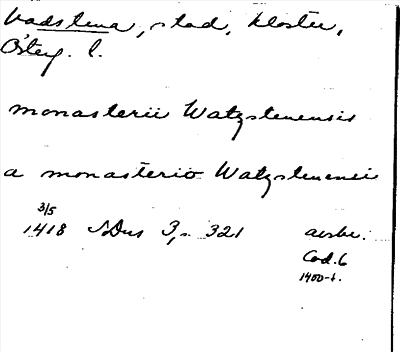 Vadstena, stad, kloster,
Österg. l.
monasterii Watzstenensis
a monasterio Watzstenensi
3/5
1418 SDns 3, s. 321 avskr.
Cod. 6
1400-t.